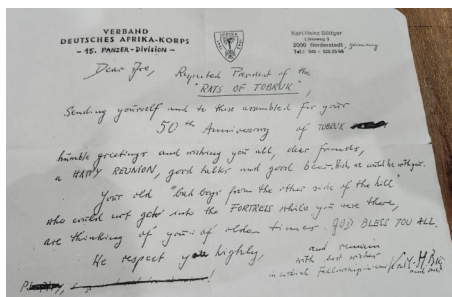 VERBAND
DEUTSCHES AFRIKA-KORPS
- 15. PANZER-DIVISION -
Karl-Heinz Böttger
2000 Norderstedt, Germany
Tel.: 040 -
Dear Joe, Respected President of the
"RATS OF TOBRUK",
Sending yourself and to those assembled for your
50th Anniversary of TOBRUK
humble greetings and wishing you all, dear friends,
a HAPPY REUNION, good talks and good beer. Wish we could be with you.
Your old "bad boys from the other side of the hill"
who could not get into the FORTRESS while you were there,
are thinking of you of olden times. GOD BLESS YOU ALL.
We respect you highly, and remain
with best wishes
in Fellowship